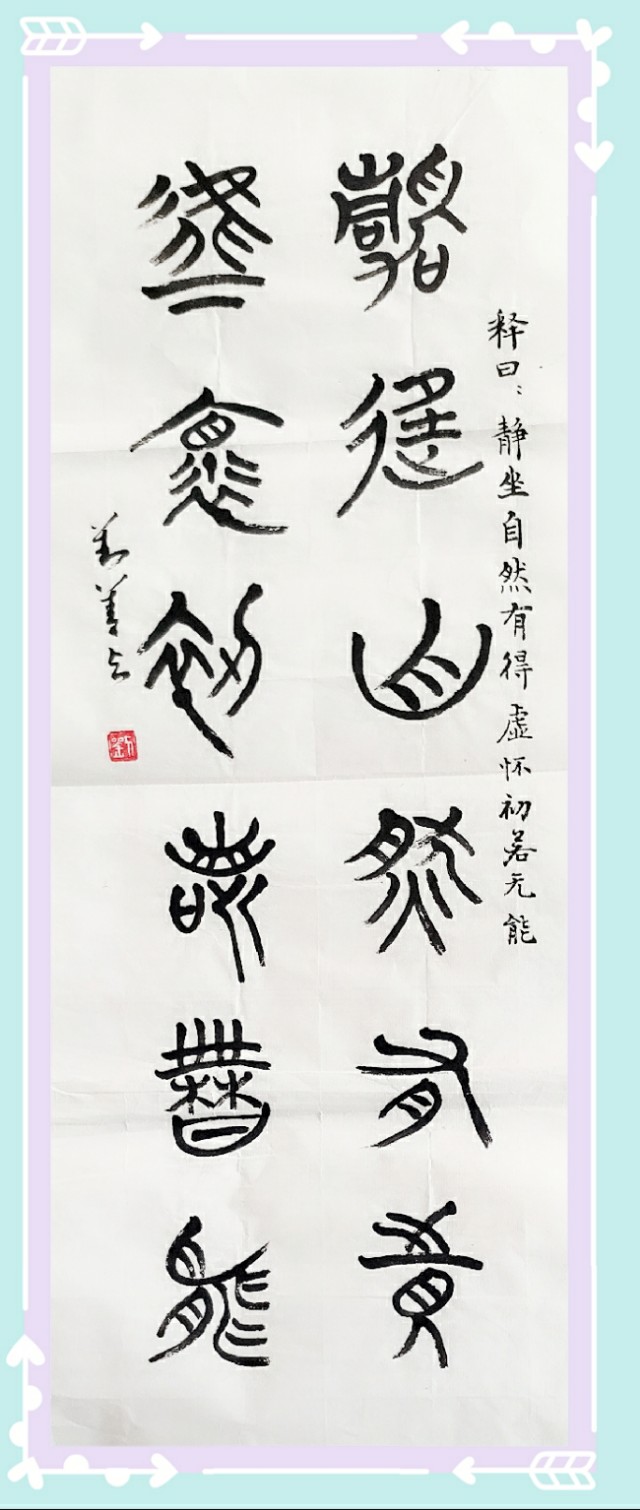 释曰：静坐自然有得 虚怀初若无能
静坐自然有得
虚怀初若无能
劉